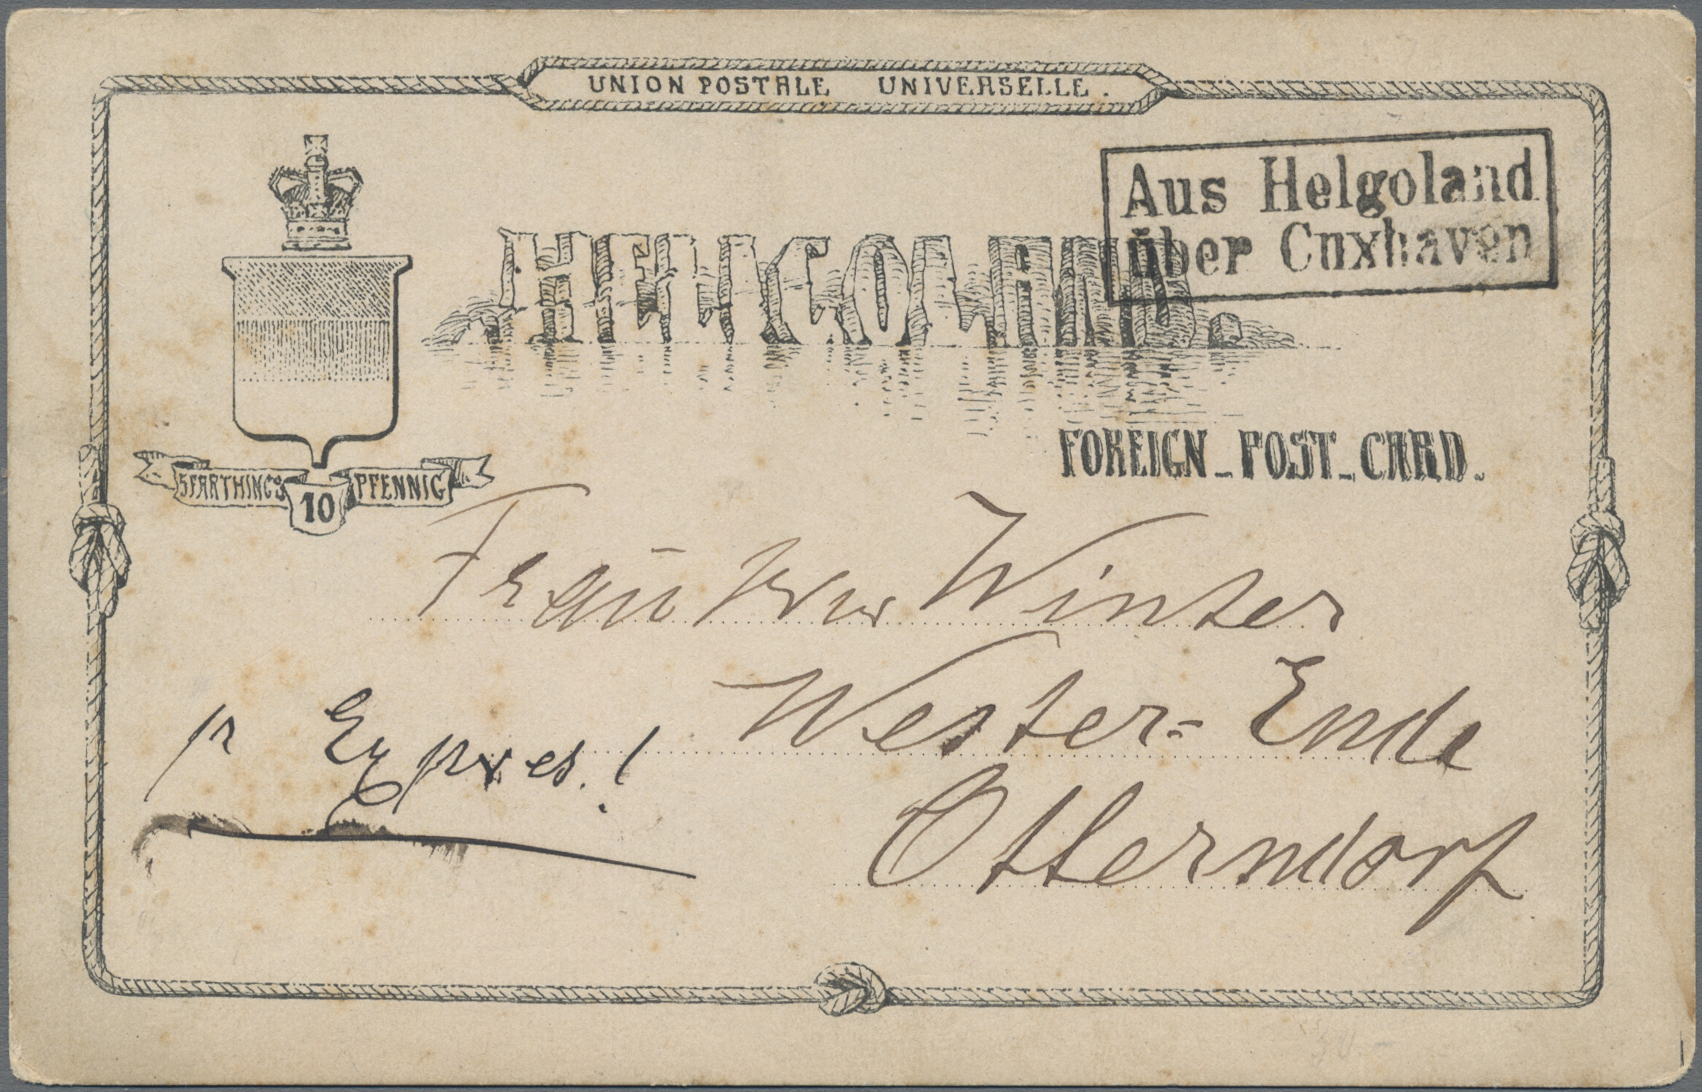 UNION POSTALE UNIVERSELLE.
Aus Helgoland
über Cuxhaven
HELGOLAND.
FOREIGN_POST_CARD.
5 FARTHINGS 10 PFENNIG
Frau Winter
Wester-Ende
pr Expres.!
Otterndorf